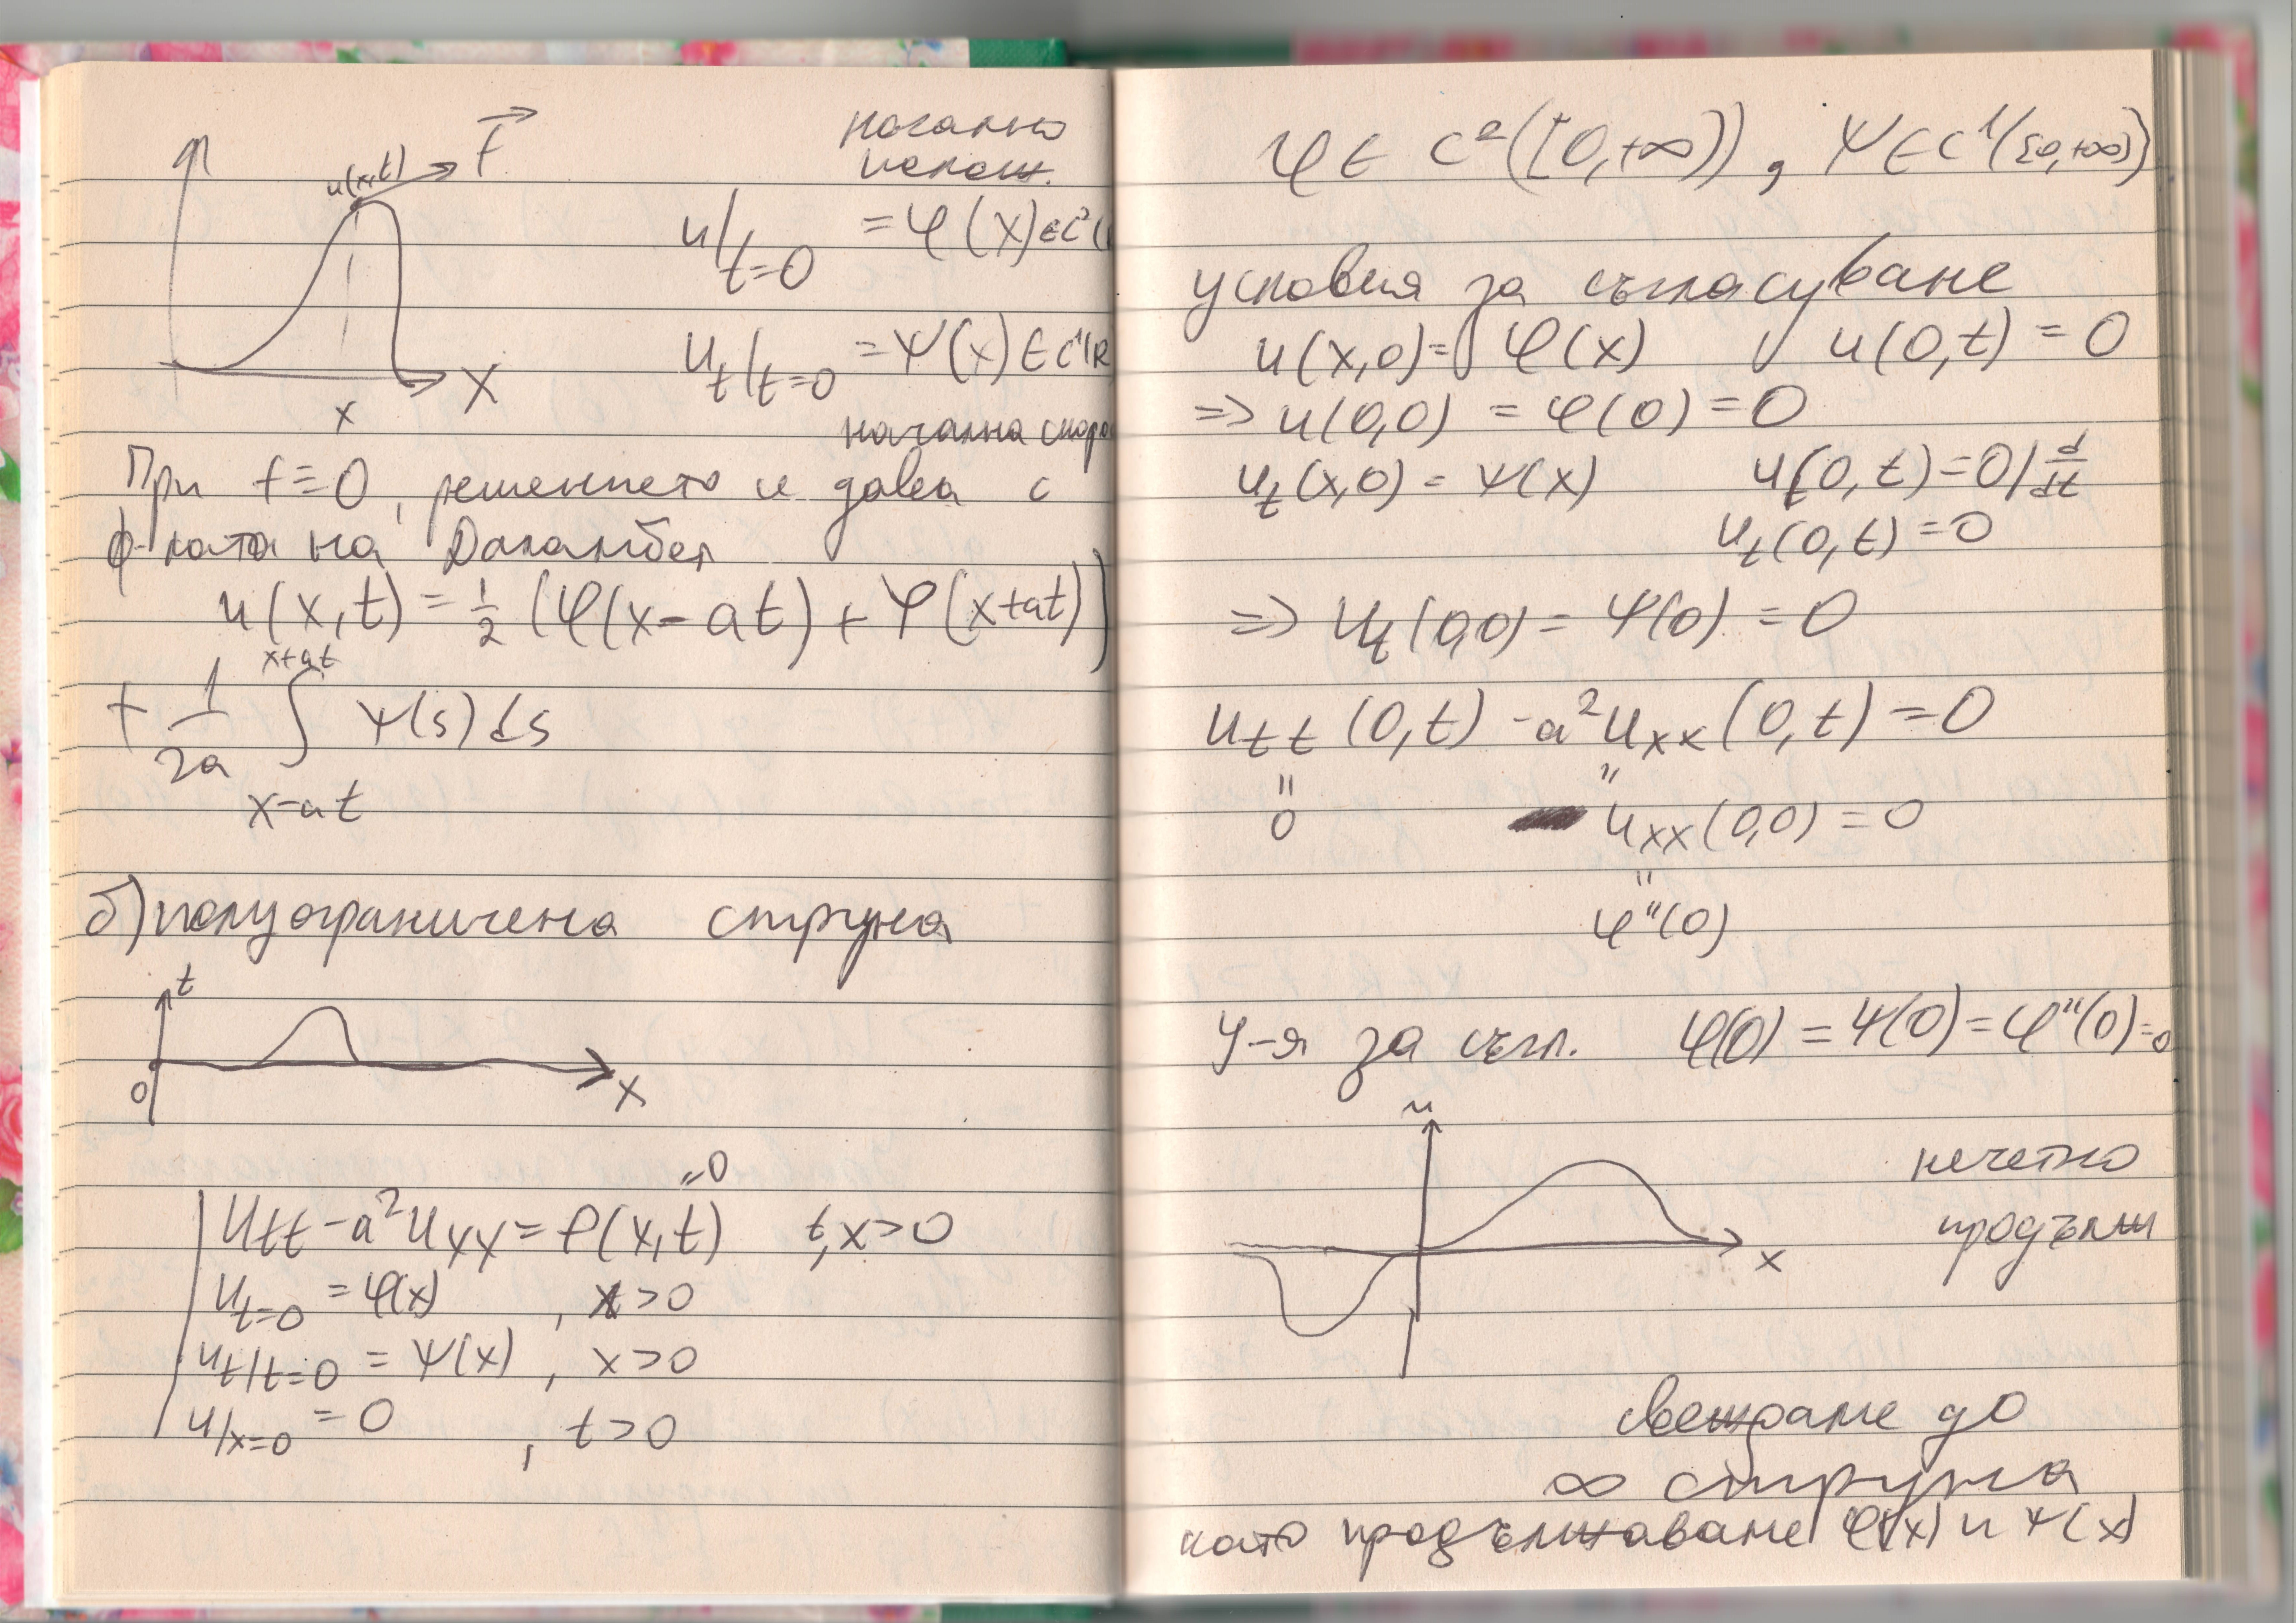 u(x,t) F⃗
начално
полож.
u/t=0 = φ(x) ∈ C²(
u_t/t=0 = ψ(x) ∈ C¹(R
x X
начална скоро
При f=0, решението се дава с
ф-лата на Даламбер
u(x,t) = 1/2 (φ(x-at) + φ(x+at))
+ 1/2a ∫_{x-at}^{x+at} ψ(s)ds
б) полуограничена струна
t
0 x
=0
u_tt - a²u_xx = f(x,t) t,x>0
u_t=0 = φ(x) , x>0
u_t/t=0 = ψ(x) , x>0
u/x=0 = 0 , t>0
φ ∈ C²([0,+∞)), ψ ∈ C¹([0,+∞))
условия за съгласуване
u(x,0) = φ(x) u(0,t) = 0
=> u(0,0) = φ(0) = 0
u_t(x,0) = ψ(x) u(0,t) = 0 / d/dt
u_t(0,t) = 0
=> u_t(0,0) = ψ(0) = 0
u_tt(0,t) - a²u_xx(0,t) = 0
" "
0 u_xx(0,0) = 0
"
φ''(0)
У-я за съгл. φ(0) = ψ(0) = φ''(0) = 0
u
нечетно
продълж
x
свеждаме до
∞ струна
като продължаваме φ(x) и ψ(x)